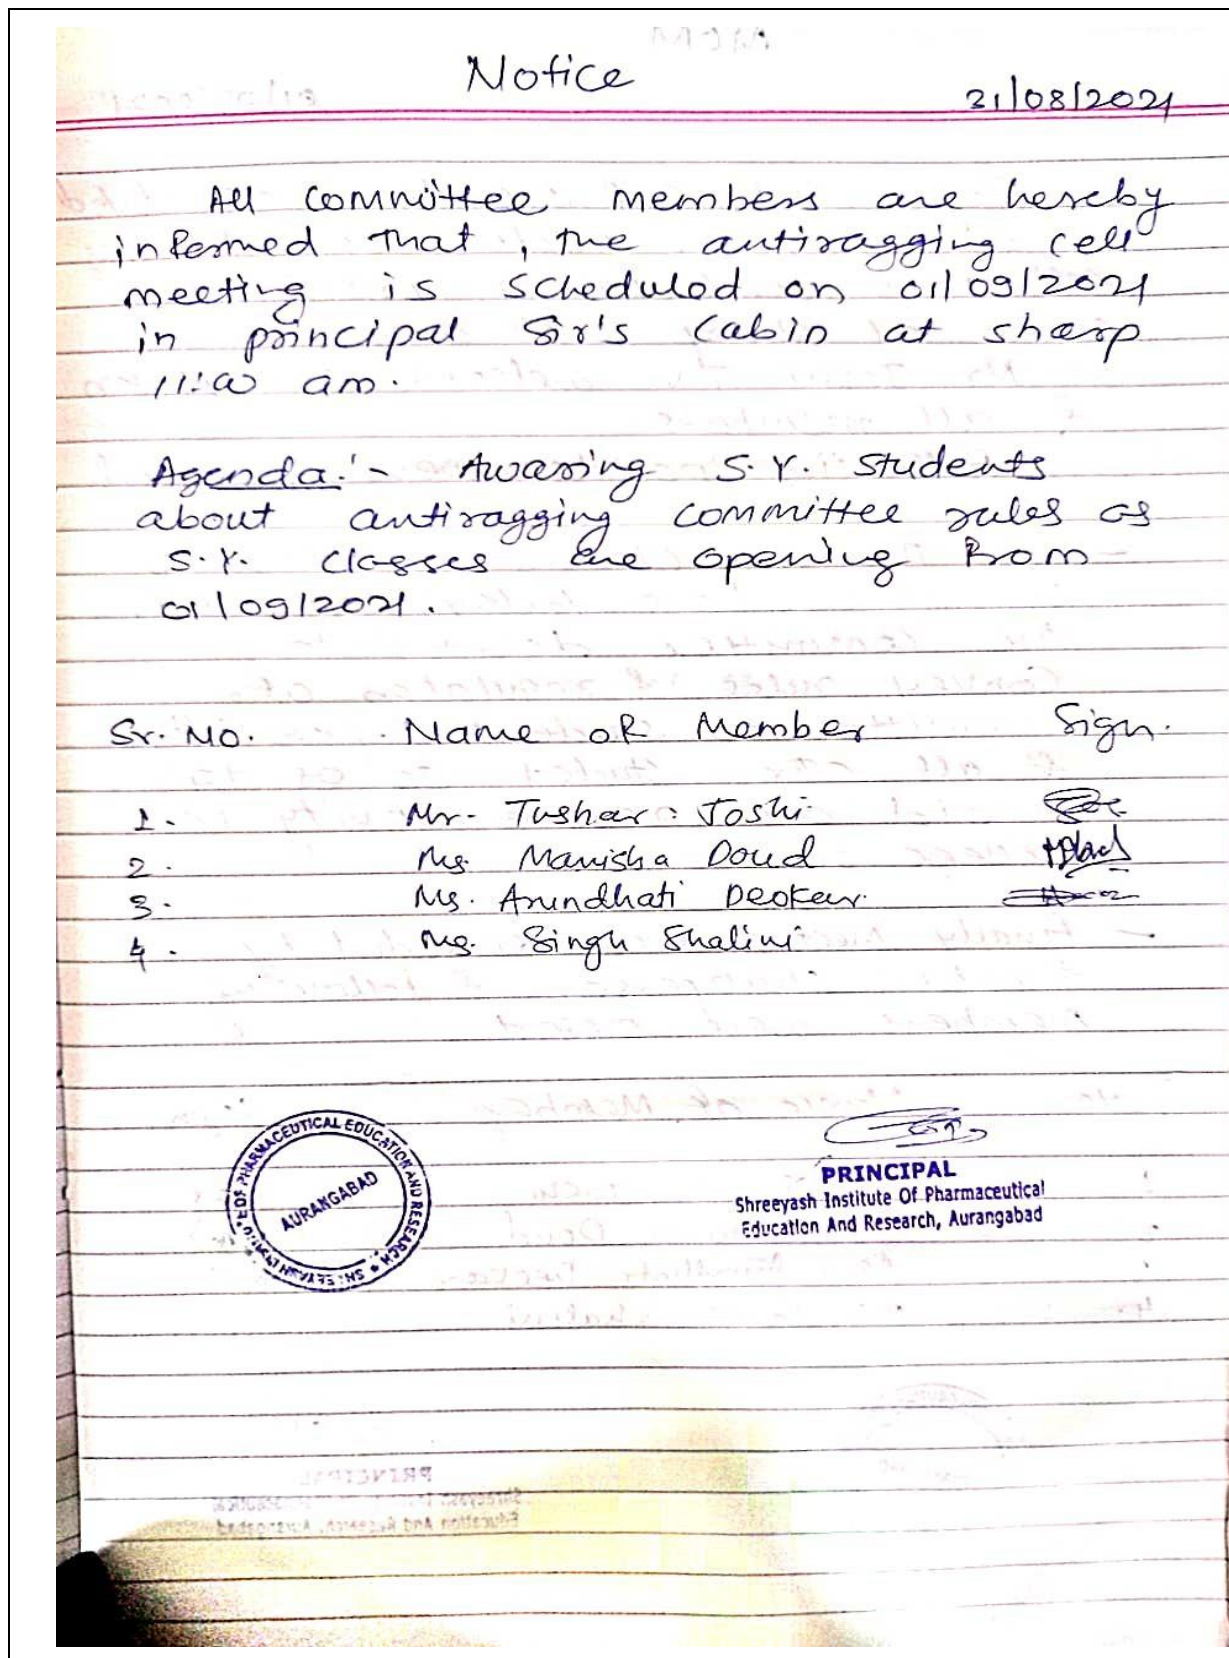 Notice
31/08/2021
All committee members are hereby
informed that, the antiragging cell
meeting is scheduled on 01/09/2021
in principal Sir's Cabin at sharp
11:00 am.
Agenda:- Awaring S.Y. Students
about antiragging committee rules as
S.Y. classes are opening from
01/09/2021.
Sr. No. Name of Member Sign.
1. Mr. Tushar Joshi
2. Ms. Manisha Doud
3. Ms. Arundhati Deokar.
4. Ms. Singh Shalini
SHREEYASH INSTITUTE OF PHARMACEUTICAL EDUCATION AND RESEARCH *
AURANGABAD
PRINCIPAL
Shreeyash Institute Of Pharmaceutical
Education And Research, Aurangabad